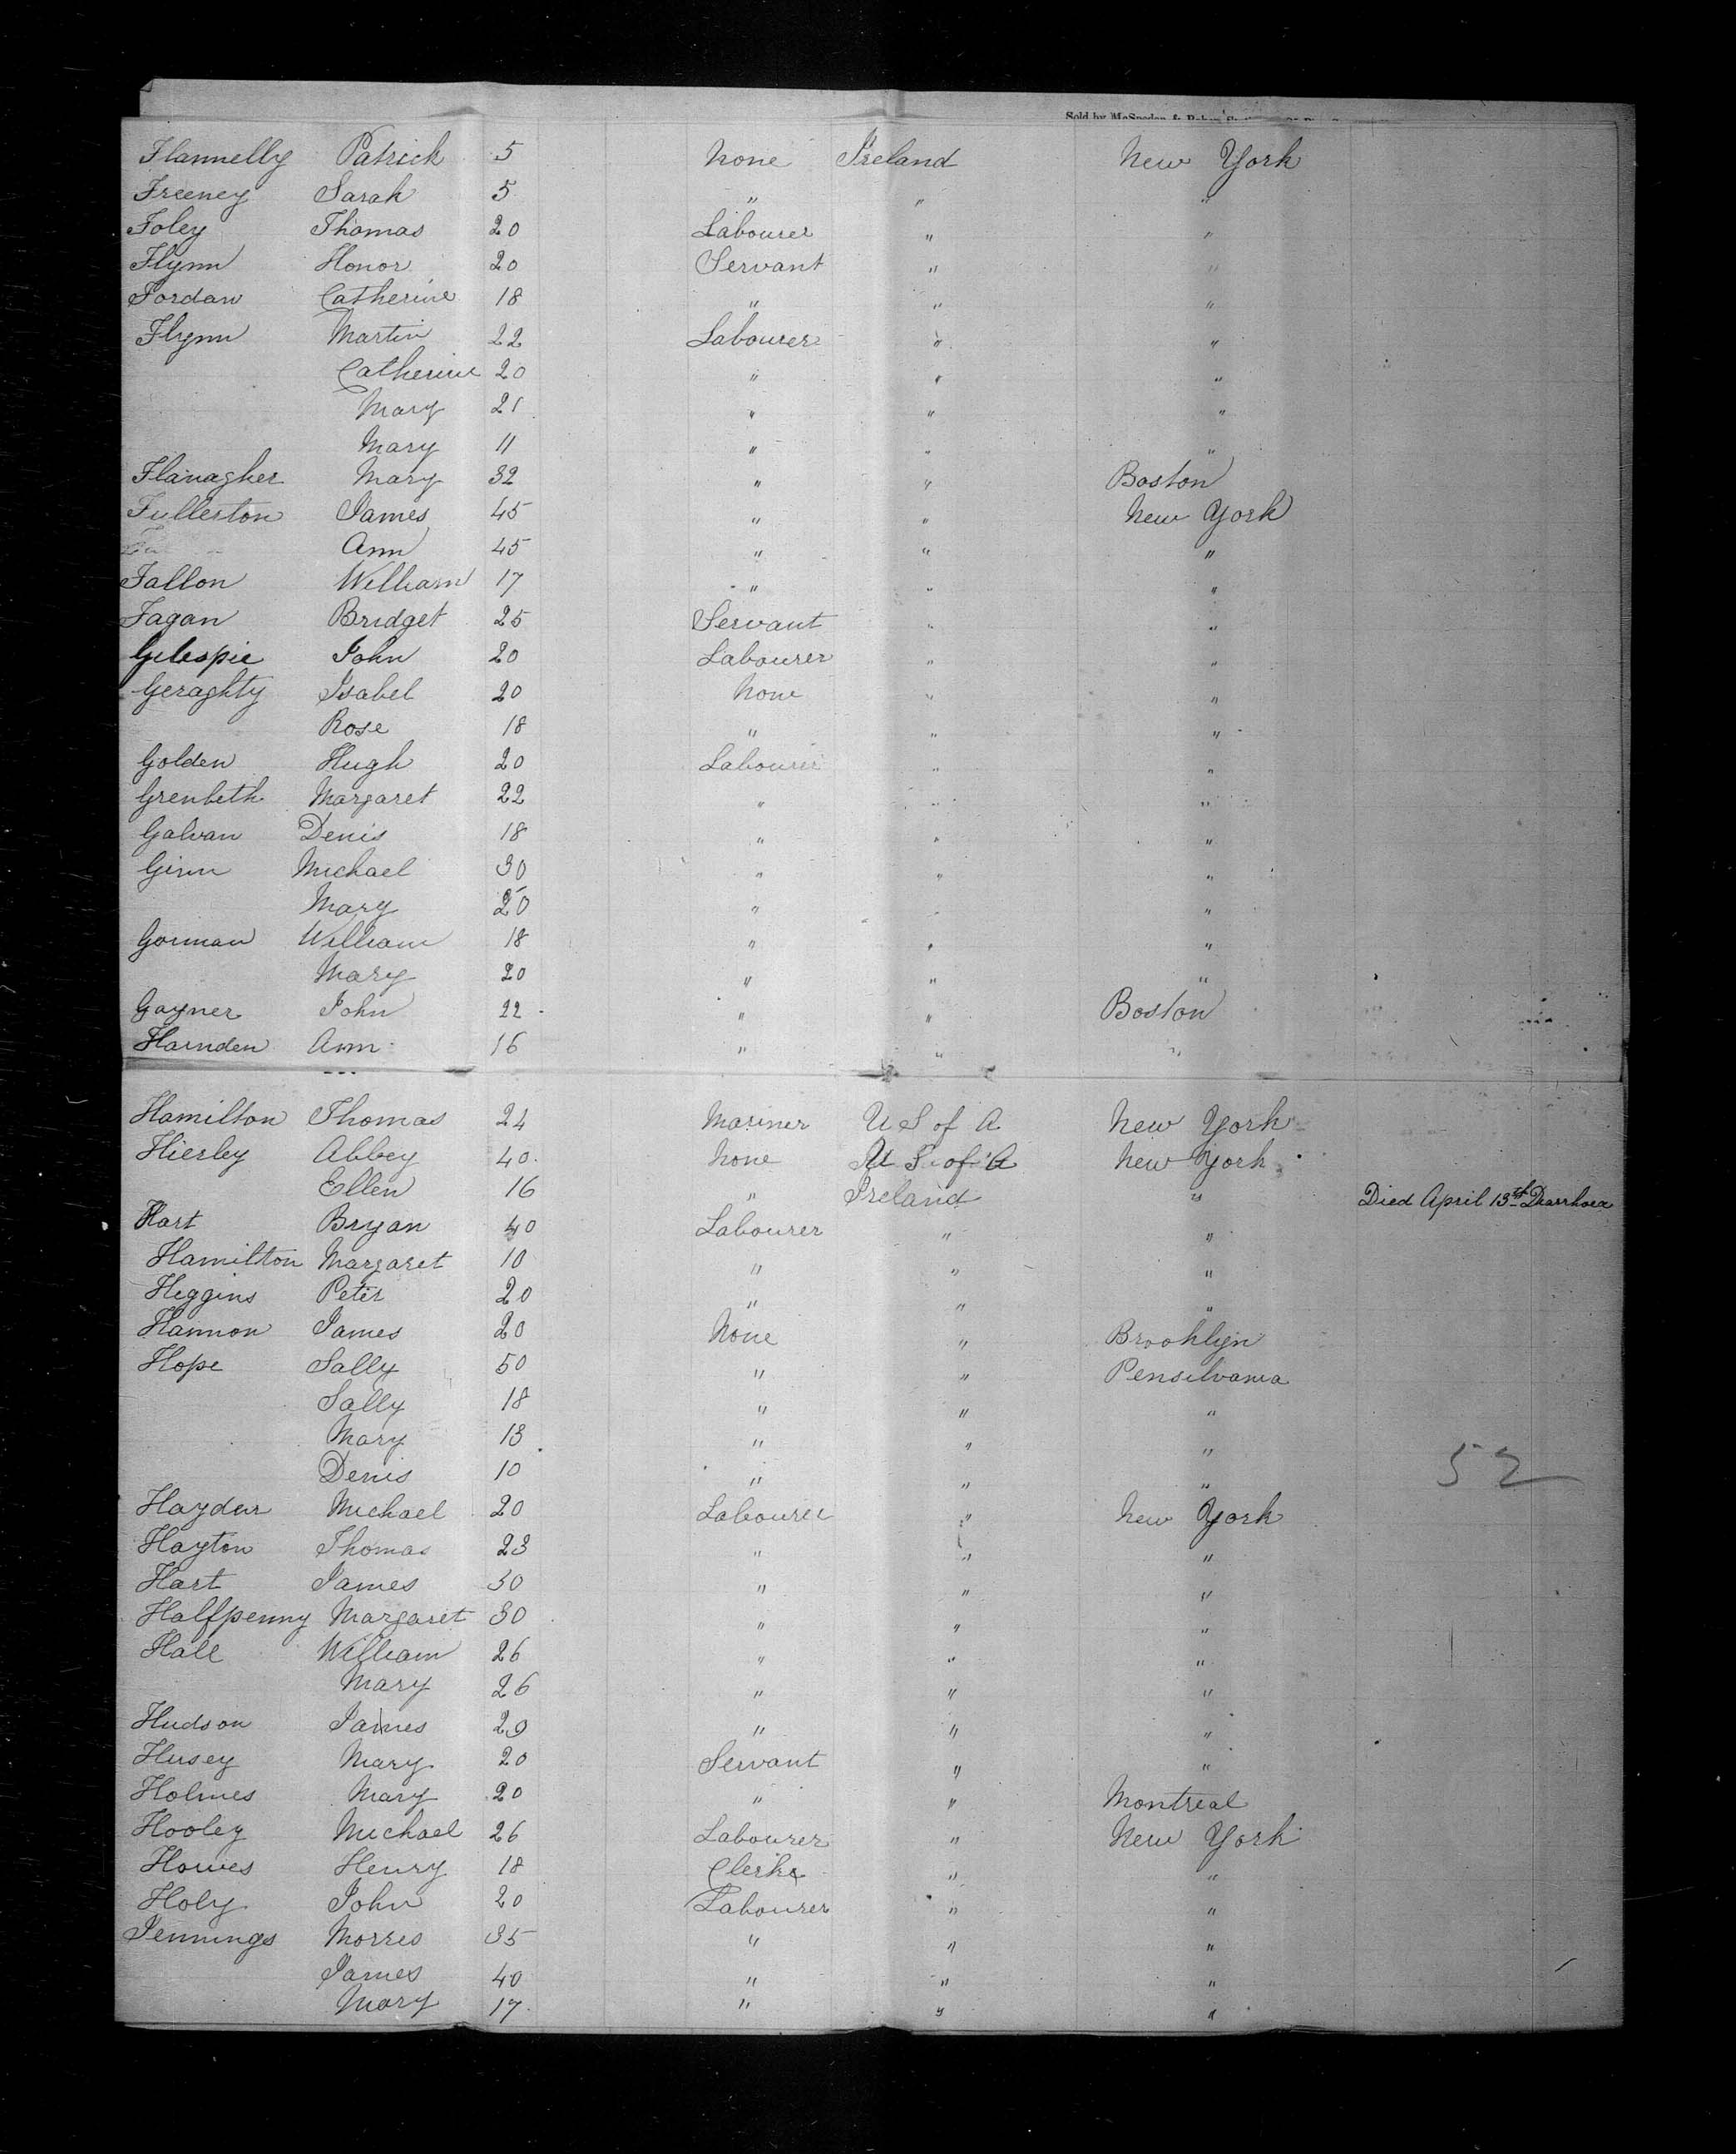 Sold by McSpedon & Baker
Flannelly Patrick 5 None Ireland New York
Freeney Sarah 5 " " "
Foley Thomas 20 Labourer " "
Flynn Honor 20 Servant " "
Jordan Catherine 18 " " "
Flynn Martin 22 Labourer " "
Catherine 20 " " "
Mary 21 " " "
Mary 11 " " "
Flanagher Mary 32 " " Boston
Fullerton James 45 " " New York
Ann 45 " " "
Fallon William 17 " " "
Fagan Bridget 25 Servant " "
Gilespie John 20 Labourer " "
Geraghty Isabel 20 None " "
Rose 18 " " "
Golden Hugh 20 Labourer " "
Grenbeth Margaret 22 " " "
Galvan Denis 18 " " "
Ginn Michael 30 " " "
Mary 20 " " "
Gorman William 18 " " "
Mary 20 " " "
Gayner John 22 " " Boston
Harnden Ann 16 " " "
Hamilton Thomas 24 Mariner U S of A New York
Hierley Abbey 40 None U S of A New York
Ellen 16 " Ireland " Died April 13th Diarrhoea
Hart Bryan 40 Labourer " "
Hamilton Margaret 10 " " "
Higgins Peter 20 " " "
Hannon James 20 None " Brooklyn
Hope Sally 50 " " Pensilvania
Sally 18 " " "
Mary 13 " " "
Denis 10 " " "
52
Hayden Michael 20 Labourer " New York
Hayton Thomas 23 " " "
Hart James 30 " " "
Halfpenny Margaret 30 " " "
Hall William 26 " " "
Mary 26 " " "
Hudson James 29 " " "
Husey Mary 20 Servant " "
Holmes Mary 20 " " Montreal
Hooley Michael 26 Labourer " New York
Howes Henry 18 Clerk " "
Holy John 20 Labourer " "
Jennings Morres 35 " " "
James 40 " " "
Mary 17 " " "